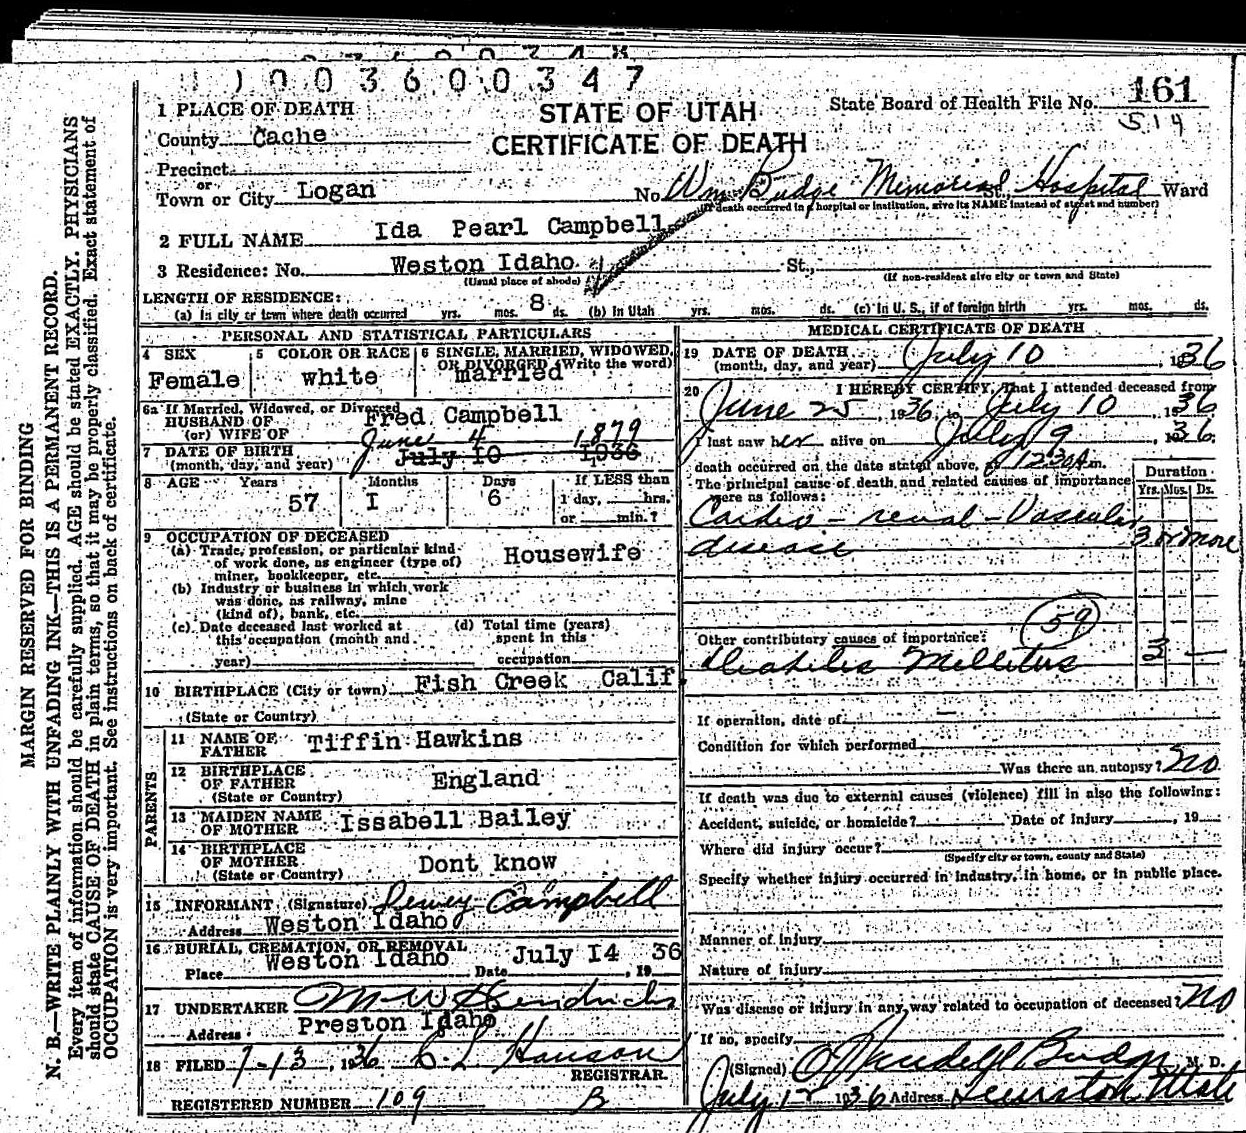 0 0 3 6 0 0 3 4 7
1 PLACE OF DEATH
STATE OF UTAH
CERTIFICATE OF DEATH
State Board of Health File No. 161
514
County Cache
Precinct
or
Town or City Logan No. Wm. Budge Memorial St., Hospital Ward
(If death occurred in a hospital or institution, give its NAME instead of street and number)
2 FULL NAME Ida Pearl Campbell
3 Residence: No. Weston Idaho St.,
(Usual place of abode) (If non-resident give city or town and State)
LENGTH OF RESIDENCE:
(a) In city or town where death occurred yrs. mos. 8 ds. (b) In Utah yrs. mos. ds. (c) In U. S., if of foreign birth yrs. mos. ds.
PERSONAL AND STATISTICAL PARTICULARS
4 SEX
Female
5 COLOR OR RACE
white
6 SINGLE, MARRIED, WIDOWED, OR DIVORCED (Write the word)
married
6a If Married, Widowed, or Divorced
HUSBAND OF
(or) WIFE OF Fred Campbell
7 DATE OF BIRTH
(month, day, and year)
June 4 1879
July 10 1936
8 AGE Years Months Days If LESS than
57 I 6 1 day, hrs.
or min.?
9 OCCUPATION OF DECEASED
(a) Trade, profession, or particular kind
of work done, as engineer (type of)
miner, bookkeeper, etc.
Housewife
(b) Industry or business in which work
was done, as railway, mine
(kind of), bank, etc.
(c) Date deceased last worked at
this occupation (month and
year)
(d) Total time (years)
spent in this
occupation
10 BIRTHPLACE (City or town) Fish Creek Calif.
(State or Country)
PARENTS
11 NAME OF
FATHER Tiffin Hawkins
12 BIRTHPLACE
OF FATHER England
(State or Country)
13 MAIDEN NAME
OF MOTHER Issabell Bailey
14 BIRTHPLACE
OF MOTHER Dont know
(State or Country)
15 INFORMANT (Signature) Dewey Campbell
Address Weston Idaho
16 BURIAL, CREMATION, OR REMOVAL
Place Weston Idaho Date July I4, 19 36
17 UNDERTAKER M W Hendricks
Address Preston Idaho
18 FILED 7-13, 1936 C L Hanson
REGISTRAR.
REGISTERED NUMBER 109 B
MEDICAL CERTIFICATE OF DEATH
19 DATE OF DEATH
(month, day, and year) July 10, 1936
20 I HEREBY CERTIFY, That I attended deceased from
June 25, 1936, to July 10, 1936
I last saw her alive on July 9, 1936
death occurred on the date stated above, at 12:30 A m.
The principal cause of death and related causes of importance
were as follows:
Duration
Yrs. Mos. Ds.
Cardio-renal-Vascular
disease 3 or more
59
Other contributory causes of importance:
Diabetes Mellitus
If operation, date of
Condition for which performed
Was there an autopsy? No
If death was due to external causes (violence) fill in also the following:
Accident, suicide, or homicide? Date of injury , 19
Where did injury occur?
(Specify city or town, county and State)
Specify whether injury occurred in industry, in home, or in public place.
Manner of injury
Nature of injury
Was disease or injury in any way related to occupation of deceased? No
If so, specify
(Signed) O Wendell Budge, M. D.
July 12 1936 Address Lewiston Utah
MARGIN RESERVED FOR BINDING
N. B.—WRITE PLAINLY WITH UNFADING INK—THIS IS A PERMANENT RECORD.
Every item of information should be carefully supplied. AGE should be stated EXACTLY. PHYSICIANS
should state CAUSE OF DEATH in plain terms, so that it may be properly classified. Exact statement of
OCCUPATION is very important. See instructions on back of certificate.